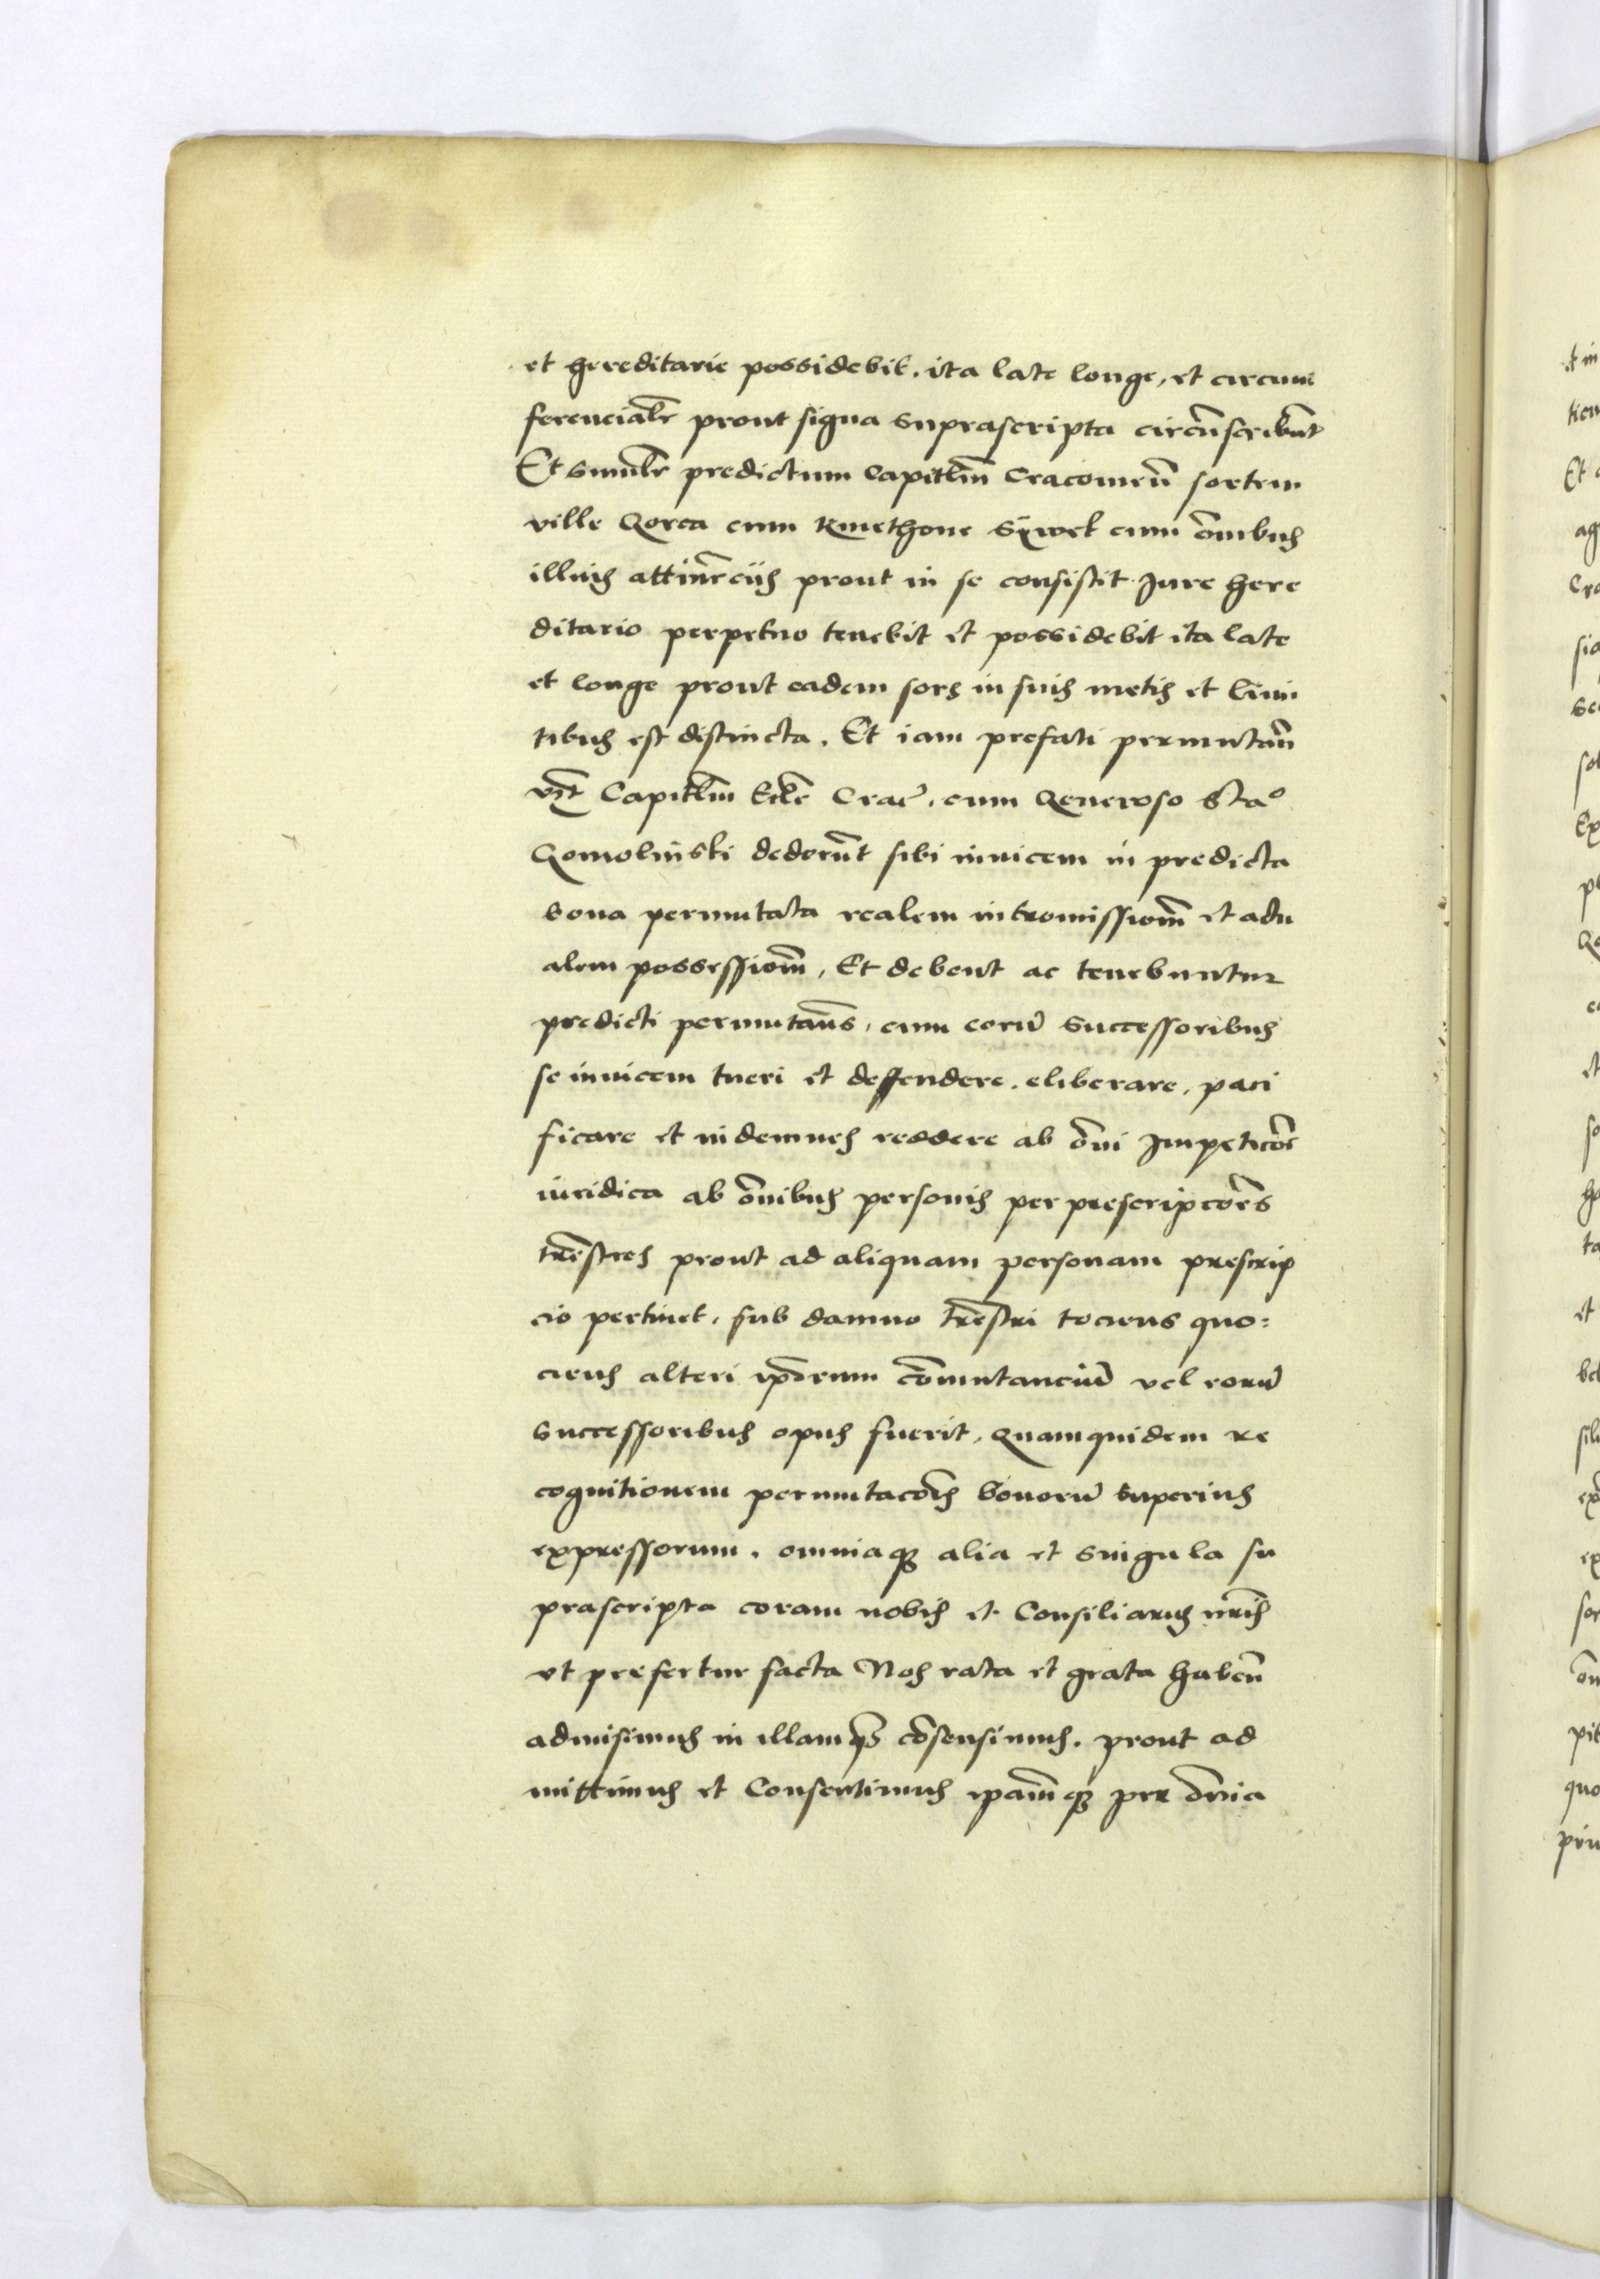 et hereditarie possidebit. ita late longe, et circum
ferencialr̄ prout signa suprascripta circūscribūt
Et similr̄ predictum Capitlm̄ Cracovieñ sortem
ville Gorca cum kmethone Sywek cum ōmibus
illius attinēciis prout in se consistit Jure here
ditario perpetuo tenebit et possidebit ita late
et longe prout eadem sors in suis metis et limi
tibus est distincta. Et iam prefati permutañ
vīƺ Capitlm̄ Eccle Crac̄. cum Generoso Sta°
Gomolinski dederūt sibi invicem in predicta
bona permutata realem intromissionē et actu
alem possessionē, Et debent ac tenebuntur
predicti permutañs, cum eorū successoribus
se invicem tueri et deffendere. eliberare, paci
ficare et indemnes reddere ab ōni Impeticōe
iuridica ab ōnibus personis per prescripcōes
tr̄estres prout ad aliquam personam prescrip
cio pertinet, sub damno tr̄estri tociens quo=
ciens alteri ip̄orum cōmutanciū vel eorū
successoribus opus fuerit, quamquidem re
cognitionem permutacōis bonorū superius
expressorum. omniaqꝫ alia et singula su
prascripta coram nobis et Consiliariis nr̄is
ut prefertur facta Nos rata et grata habeñ
admisimus in illamqꝫ cōsensimus. prout ad
mittimus et Consentimus ip̄amqꝫ pre oīnia